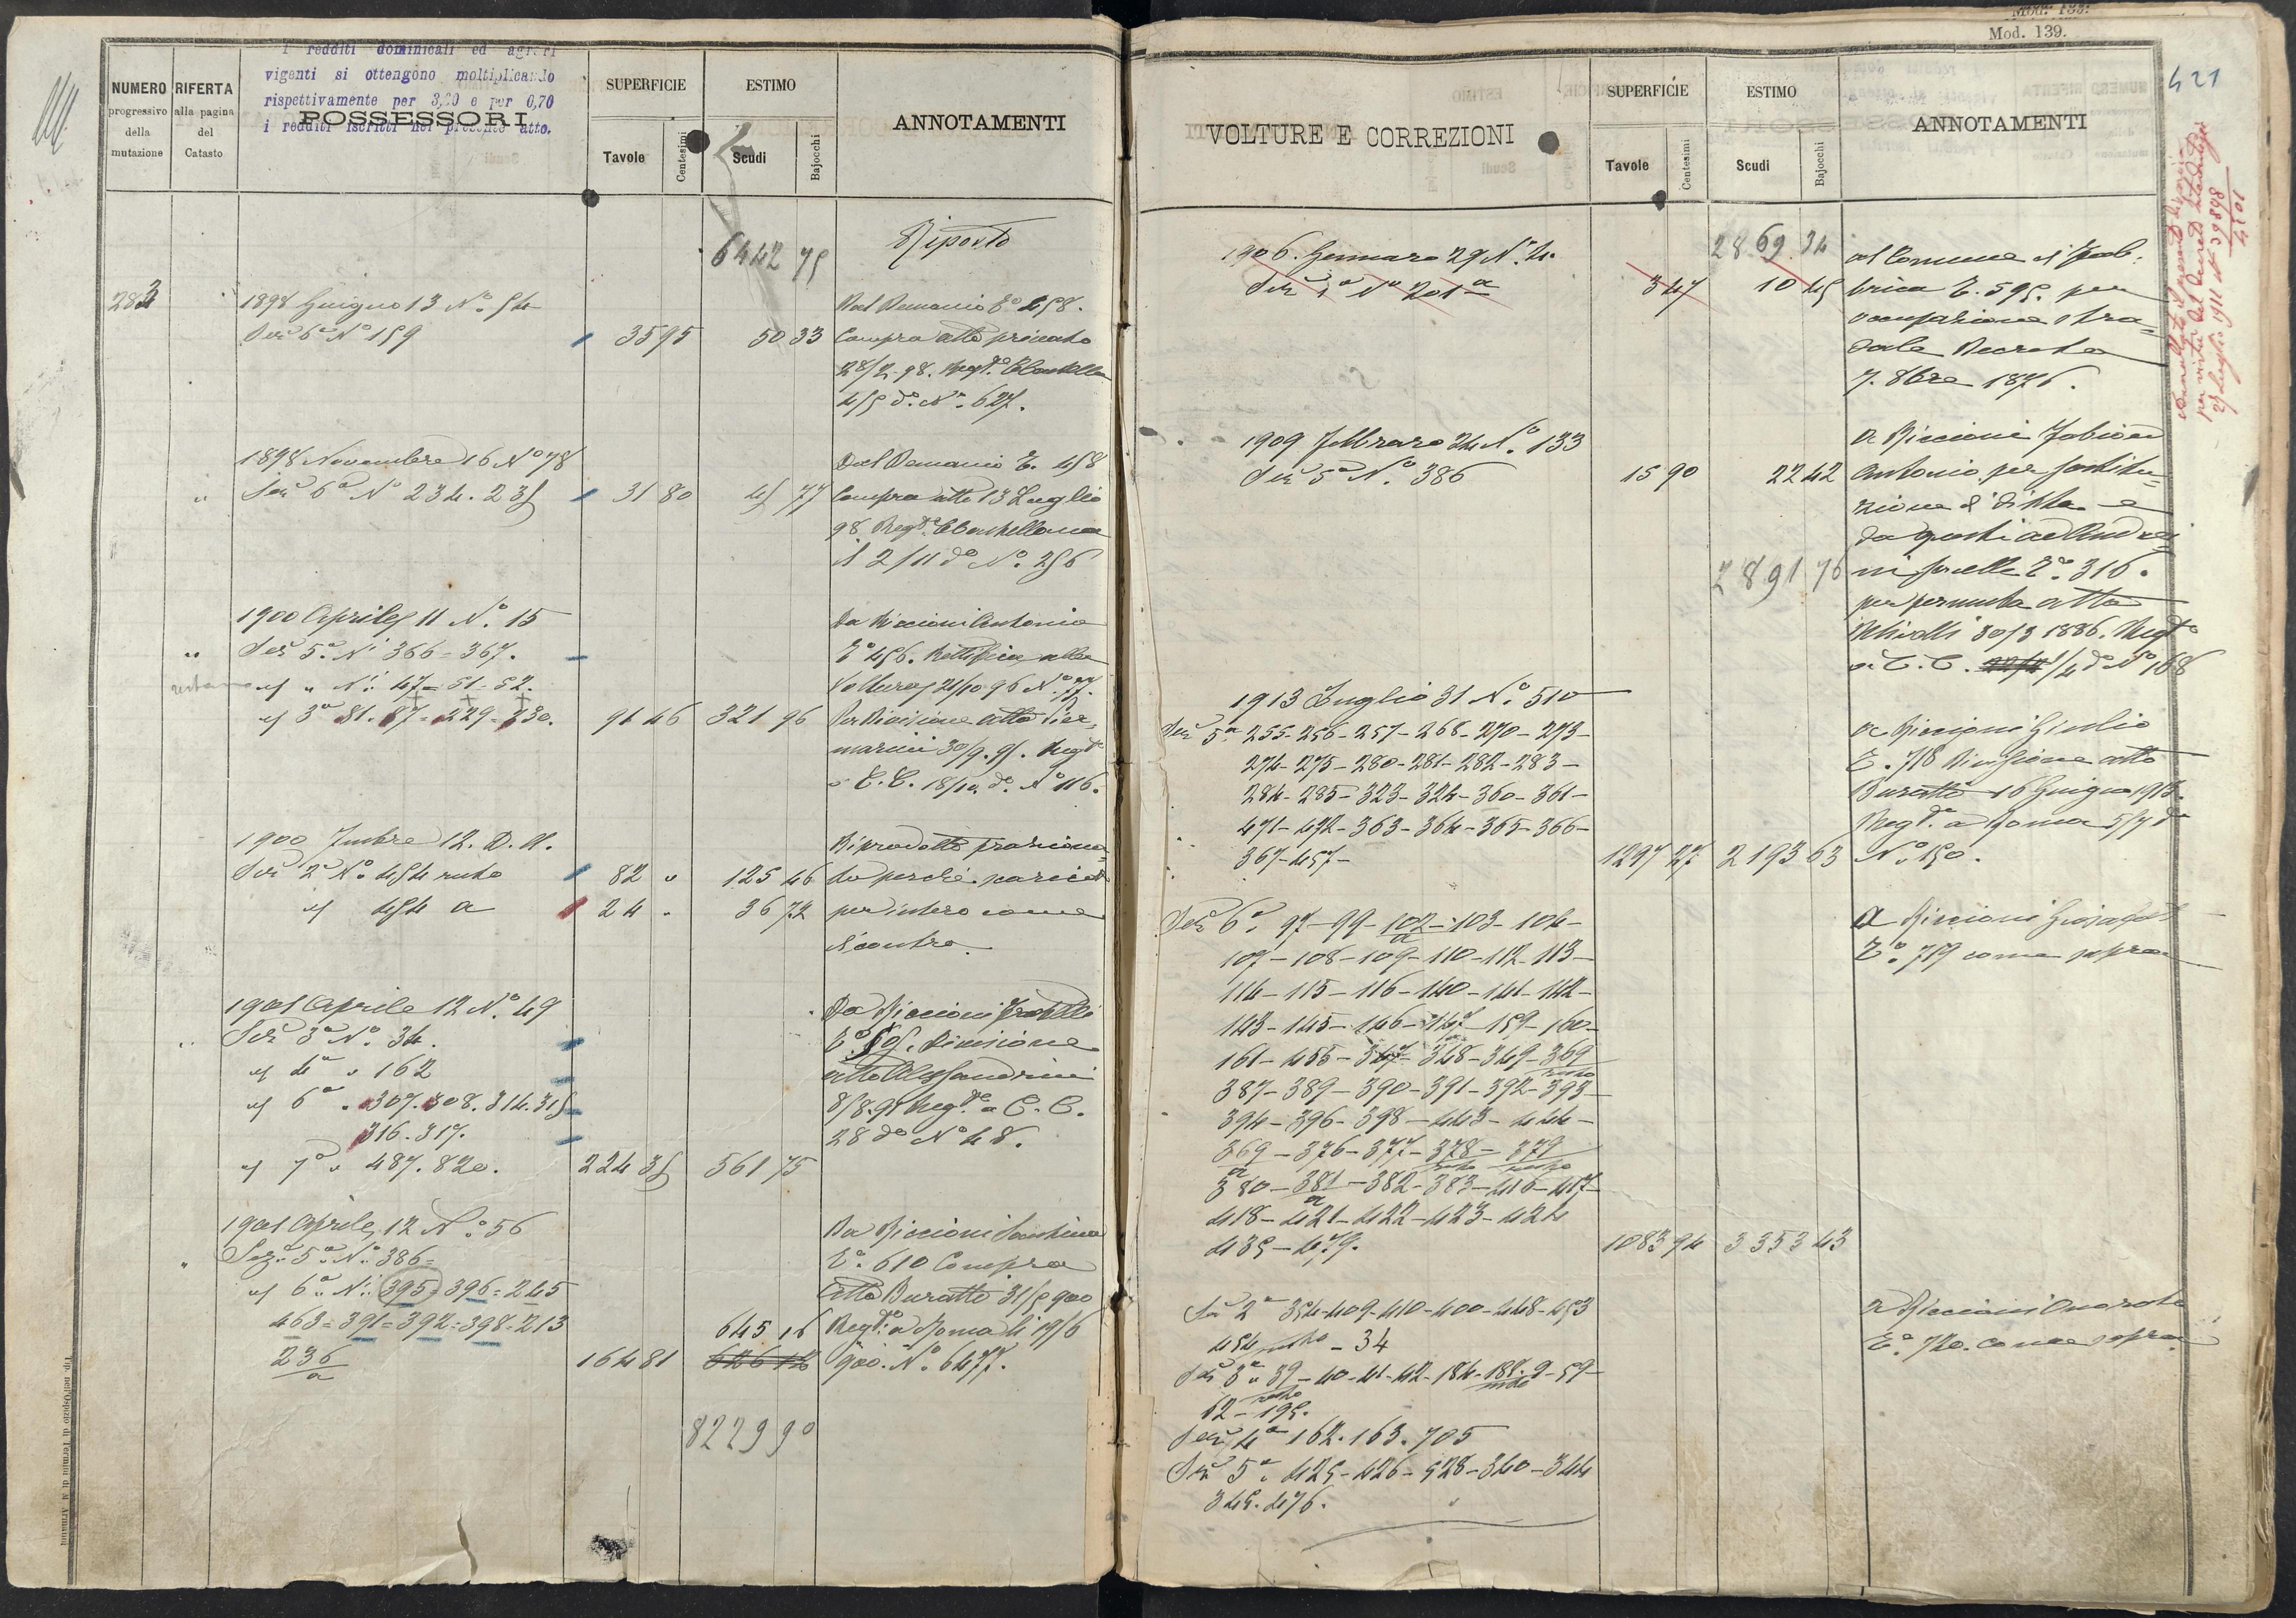 I redditi dominicali ed agrari
vigenti si ottengono moltiplicando
rispettivamente per 3,20 e per 0,70
i redditi iscritti nel presente atto.
NUMERO
progressivo
della
mutazione
RIFERTA
alla pagina
del
Catasto
POSSESSORI
SUPERFICIE
Tavole
Centesimi
ESTIMO
Scudi
Bajocchi
ANNOTAMENTI
6442 75 Riporto
283
1898 Giugno 13 N.° 54 Dal Demanio
Sez. 6ª N° 159 35 95 50 33 Compra atto privato
1898 Novembre 16 N° 78 Dal Demanio
" Sez. 6ª N° 234. 235 31 80 45 77 Compra atto 13 Luglio
98 Reg.
il 2/11 d° N° 256
1900 Aprile 11 N.° 15 Da Riccioni Antonio
" Sez. 5ª N¹ 366 = 367. Rettifica alla
" " N¹ 47 = 51 = 52. Voltura 21/10 96 N.° 77.
" 3ª 81. 87 = 229 = 230. 94 46 321 96 Per Divisione atto Pier-
marini 30/9. 95. Reg
a C. C. 18/10. d° N° 116.
1900 12. D. U.
Sez. 2ª N° 454 resto 82 " 125 46
" 454 a 24 " 36 72 per intero come
contro.
1901 Aprile 12 N.° 49 Da Riccioni Fratelli
" Sez. 3ª N° 34. Divisione
" 4ª " 162 atto Alessandrini
" 6ª " 307. 308. 314. 315 8/8. 95 Reg. a C. C.
316. 317. 28 d° N° 48.
" 7ª " 487. 820. 224 35 561 75
1901 Aprile 12 N.° 56 Da Riccioni Santina
" Sez. 5ª N° 386 = T.° 610 Compra
" 6ª N¹ 395 = 396 = 245 atto Buratti 31/5 900
463 = 391 = 392 = 398 = 213 645 16 Reg. a Roma li 19/6
236/a 164 81 626 12 900. N.° 6477.
8229 90
Tip. nell'Ospizio di Termini di N. Armanni
Mod. 139.
Mod. 139.
421
VOLTURE E CORREZIONI
SUPERFICIE
Tavole
Centesimi
ESTIMO
Scudi
Bajocchi
ANNOTAMENTI
28 69 34
1906. Gennaro 29 N. 4. al Comune di Fab-
Sez. N° 201 a 3 47 10 45 brica T. 595. per
occupazione stra-
dale Decreto
7. 8bre 1876.
29 Luglio 1911 N° 39898
4501
1909 Febbraro 24 N.° 133 a Riccioni Fabio ed
Sez. 5ª N.° 386 15 90 22 42 Antonio per sostitu-
zione di Ditta e
da questi ad Andrei-
2891 76 ni sorelle T.° 316.
per permuta atto
30/3 1886. Reg
a C. C. 1/4 d° N° 168
1913 Luglio 31 N.° 510
Sez. 5ª 255 - 256 - 257 - 268 - 270 - 273 - a Riccioni Giulio
274 - 275 - 280 - 281 - 282 - 283 - T. 718 Divisione atto
284 - 285 - 323 - 324 - 360 - 361 - Buratti 16 Giugno 1913.
471 - 472 - 363 - 364 - 365 - 366 - Reg. a Roma 5/7 d°
367 - 457 - 1297 27 2193 63 N.° 150.
Sez. 6ª. 97 - 99 - 102/a - 103 - 104 - A Riccioni Giosafat
107 - 108 - 109 - 110 - 112 - 113 - T.° 719 come sopra
114 - 115 - 116 - 140 - 141 - 142 -
143 - 145 - 146 - 147 - 159 - 160 -
161 - 455 - 347 - 348 - 349 - 369 resto
387 - 389 - 390 - 391 - 392 - 393 -
394 - 396 - 398 - 443 - 444 -
369/a - 376 - 377 - 378 resto - 379 resto
380 - 381/a - 382 - 383 - 416 - 417 -
418 - 421 - 422 - 423 - 424
435 - 479. 1083 94 3353 43
Sez. 2ª 354 - 409 - 410 - 400 - 448 - 453 a Riccioni Onorato
454 resto - 34 T.° 720. come sopra.
Sez. 3ª 39 resto - 40 - 41 - 42 - 184 - 188 resto - 9 - 59 -
62 - 195.
Sez. 4ª 162. 163. 705
Sez. 5ª. 425 - 426 - 528 - 340 - 344
345. 476.